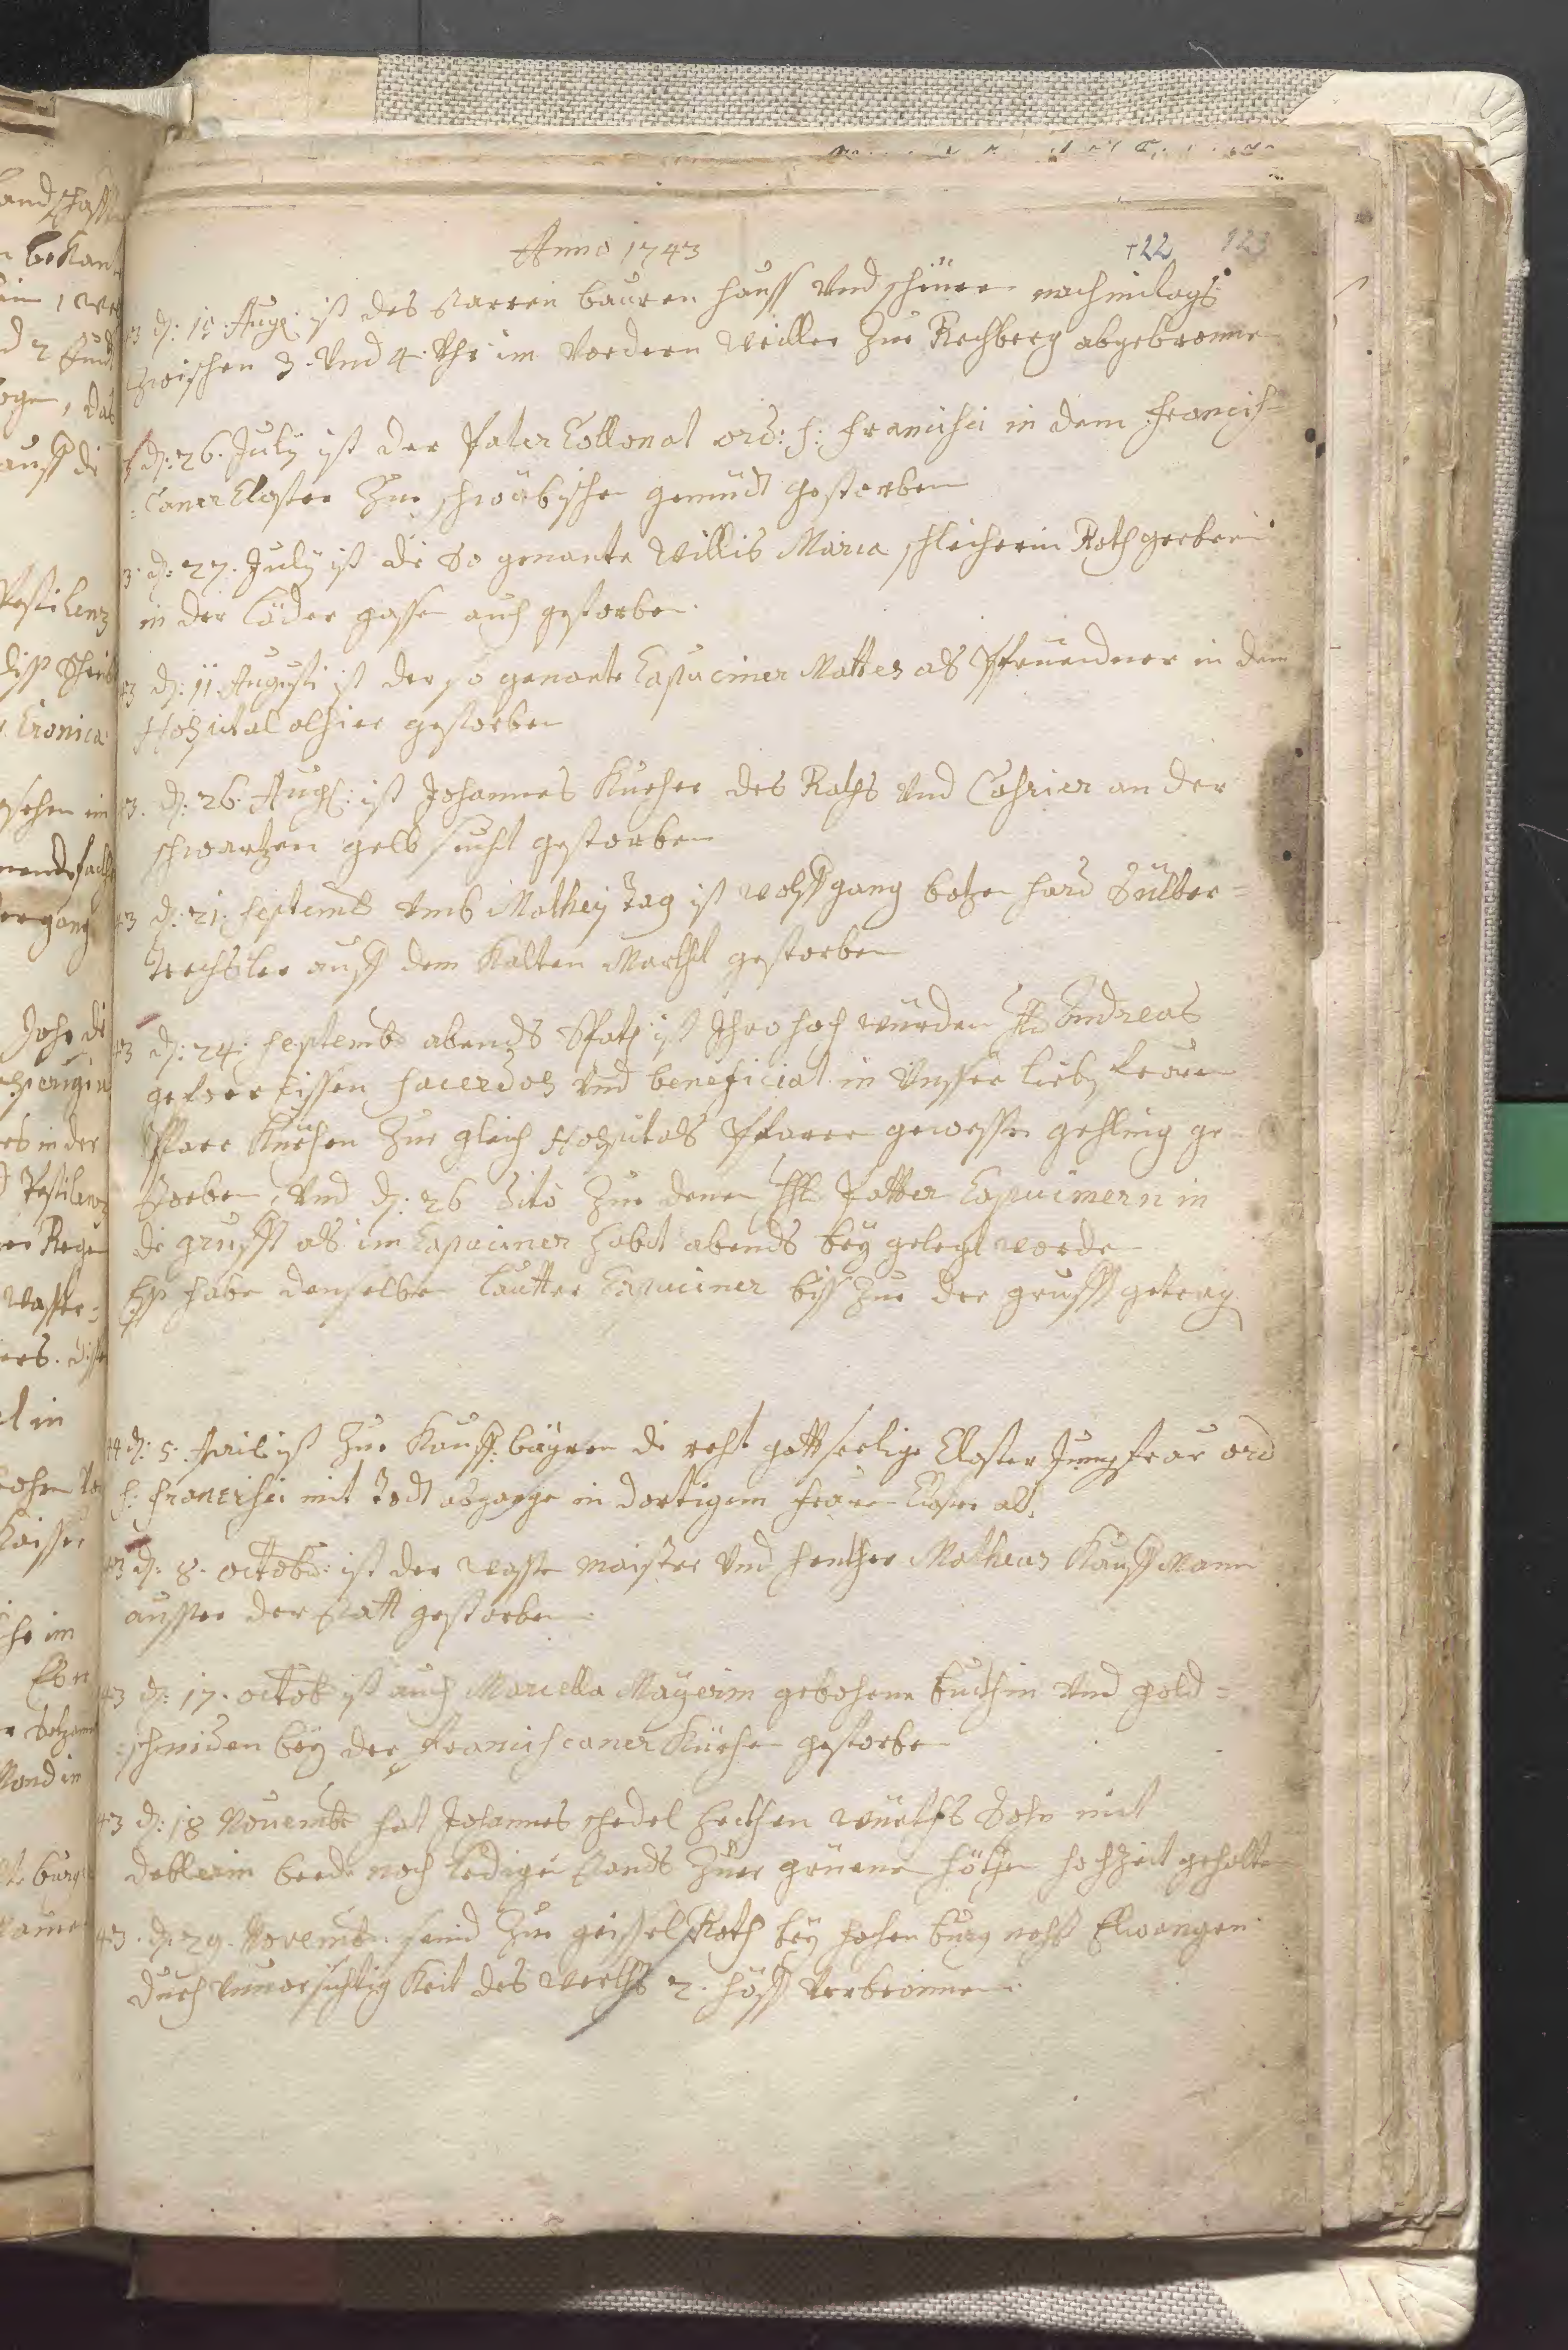 Anno 1743
122 123
43 d: 10 Aug: ist des starren bauren hauss Vnd scheüren nachmitags
Zwischen 3. Vnd 4. Vhr im Vordern Weiller Zue Rechberg abgebronnen
d: 26. July ist der Pater Collonat ord: s: Francisci in dem Francis=
=Caner Closter Zue schwäbischen gemündt gestorben
3. d: 27. July ist die So genante Willis Maria schleicherin Rothgerberin
in der Löder gassen auch gestorben
43 d: 11. Augusti ist der so genante Capuciner Mattes als Pfruendner in dem
Hospital alhier gestorben
43. d: 26. Augs: ist Johannes Kucher des Raths Vnd Cahsier an der
schwartzen gelb sucht gestorben
43 d: 21: septemb Vmb Mathey Tag ist Wolffgang botzenhard Silber=
trechsler auss dem Kalten Marckht gestorben
43 d: 24: septemb abends Spath ist Ihro hoch würden H: Andreas
sacerdos Vnd beneficiat in Vnsser lieben frauen
Pfarr Kürchen Zue gleich Hospitals Pfarrer gewessen gehling ge=
storben, Vnd d: 26 dito Zue denen HH: Patter Capucinern in
die grufft als im Capuciner habit abends bey gelegt worden
Es haben denselben lautter Capuciner biss Zue der grufft getrag
44 d: 5. April ist Zue Kauffbäyren die recht gottseelige Closter Jungfrau ord
s: Francisci mit Todt abgangen in dortigem frauen Closter alt.
43 d: 8. octobr: ist der wassen maister Vnd henkher Matheus Kauffmann
ausser der statt gestorben
43 d: 17. octob ist auch Marcella Mayerin gebohrne Vnd gold=
=schmiden bey der Franciscaner Kürchen gestorben
43 d: 18 Novemb hat Johannes schedel hechten würths Sohn mit
deblerin beede noch ledigen stands Zuer hochzeit gehalten
43. d: 29. Novemb: seind Zue geissel Roth bey hohenburg nechst Elwangen
durch Vnvorsichtigkeit des würths 2. höff Verbronnen: